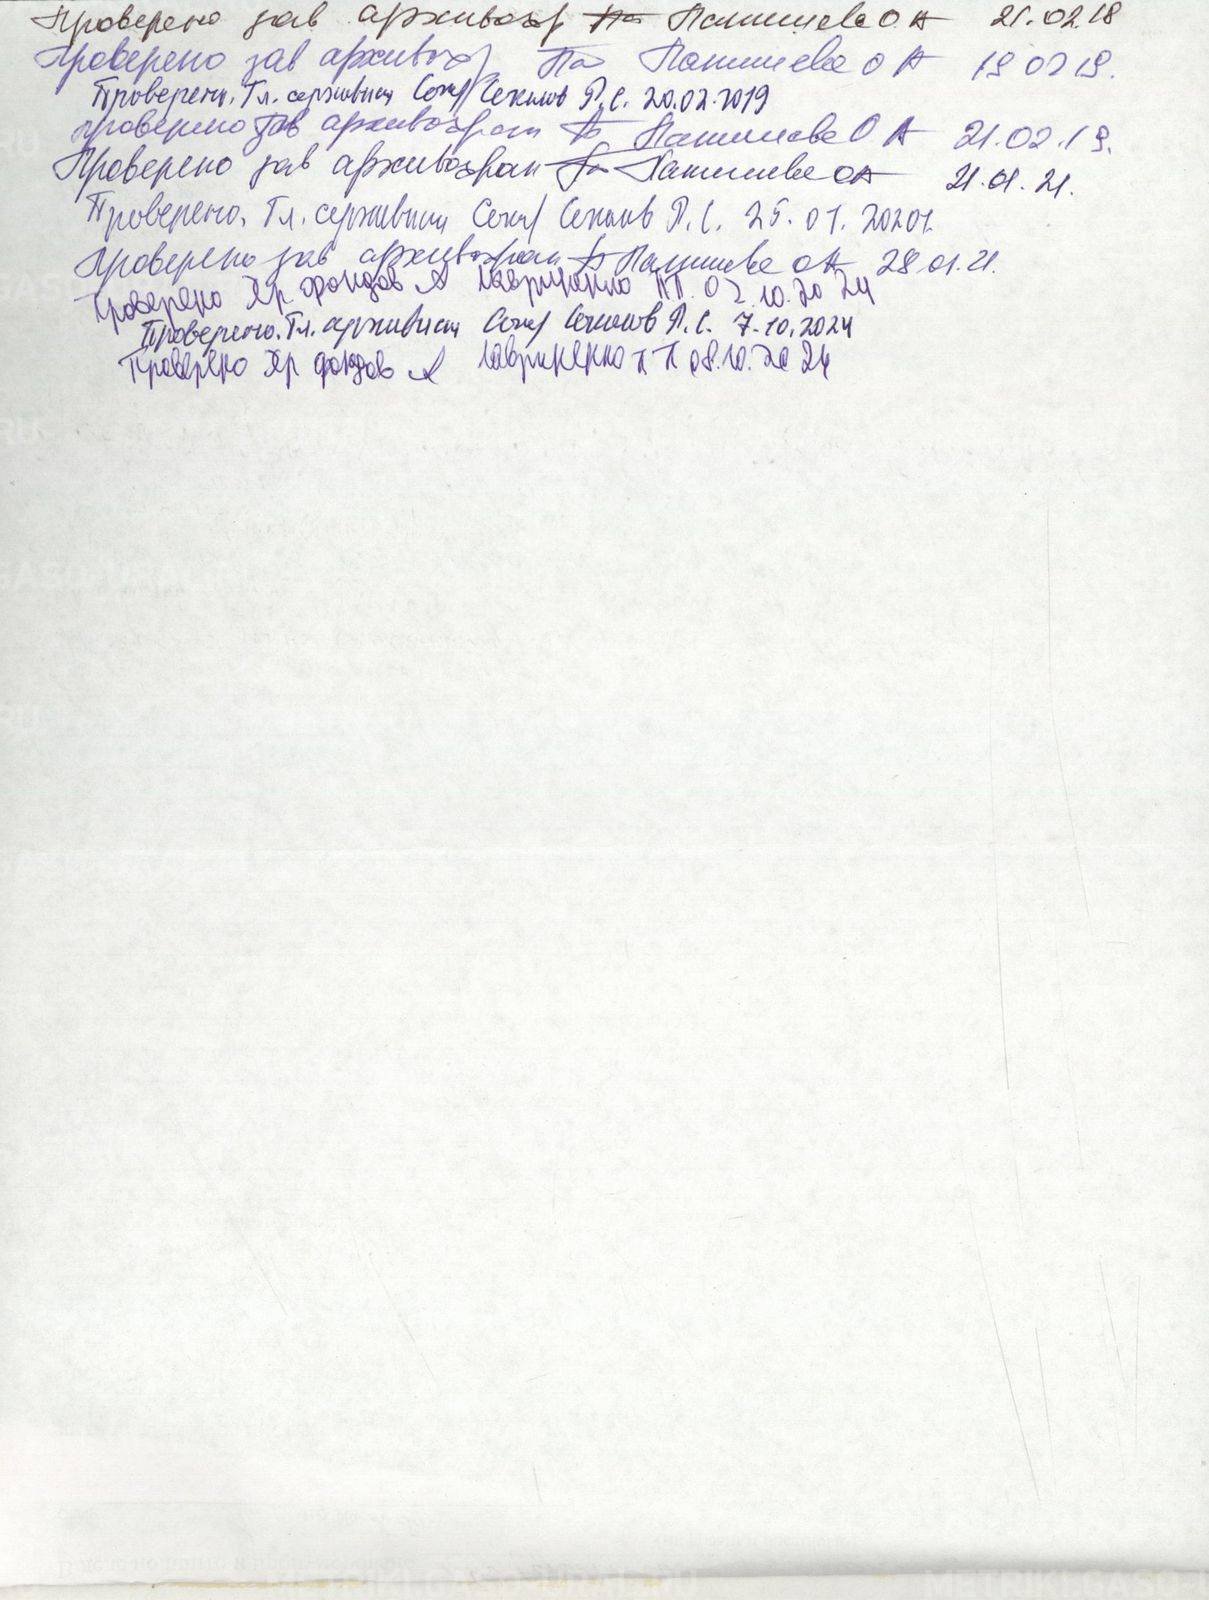 Проверено зав архивохр Патишева О А 21.02.18
Проверено зав архивохр Патишева О А 19 02 19.
Проверено. Гл. архивист Соколов Р. С. 20.02.2019
Проверено зав архивохран О. А 21.02.19.
Проверено зав архивохран ОА 21.01.21.
Проверено. Гл. архивист Р. С. 25.01.
Проверено зав архивохран ОА 28.01.21.
Проверено хр фондов Лавриненко 02.10.2024
Проверено. Гл. архивист Соколов Р. С. 7.10.2024
Проверено хр фондов Лавриненко 08.10.2024
METRIKI.GASO-URAL.RU